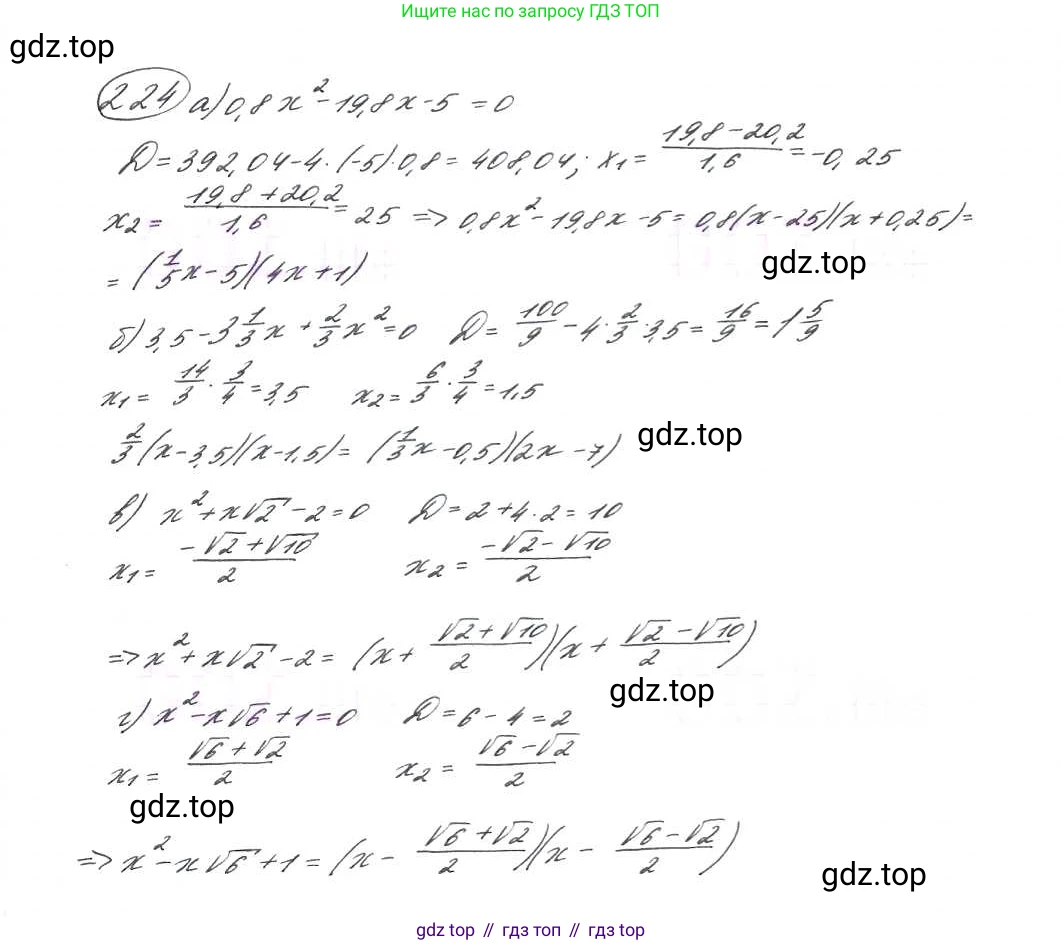 Ищите нас по запросу ГДЗ ТОП
gdz.top
224 а) 0,8x² - 19,8x - 5 = 0
D = 392,04 - 4 · (-5) · 0,8 = 408,04; x₁ = (19,8 - 20,2)/1,6 = -0,25
x₂ = (19,8 + 20,2)/1,6 = 25 => 0,8x² - 19,8x - 5 = 0,8(x - 25)(x + 0,25) =
gdz.top
= (1/5x - 5)(4x + 1)
б) 3,5 - 3 1/3x + 2/3x² = 0 D = 100/9 - 4 · 2/3 · 3,5 = 16/9 = 1 5/9
x₁ = 14/3 · 3/4 = 3,5 x₂ = 6/3 · 3/4 = 1,5
2/3(x - 3,5)(x - 1,5) = (1/3x - 0,5)(2x - 7) gdz.top
в) x² + x√2 - 2 = 0 D = 2 + 4 · 2 = 10
x₁ = (-√2 + √10)/2 x₂ = (-√2 - √10)/2
=> x² + x√2 - 2 = (x + (√2 + √10)/2)(x + (√2 - √10)/2)
gdz.top
г) x² - x√6 + 1 = 0 D = 6 - 4 = 2
x₁ = (√6 + √2)/2 x₂ = (√6 - √2)/2
gdz.top
=> x² - x√6 + 1 = (x - (√6 + √2)/2)(x - (√6 - √2)/2)
gdz.top
gdz top // гдз топ // gdz.top